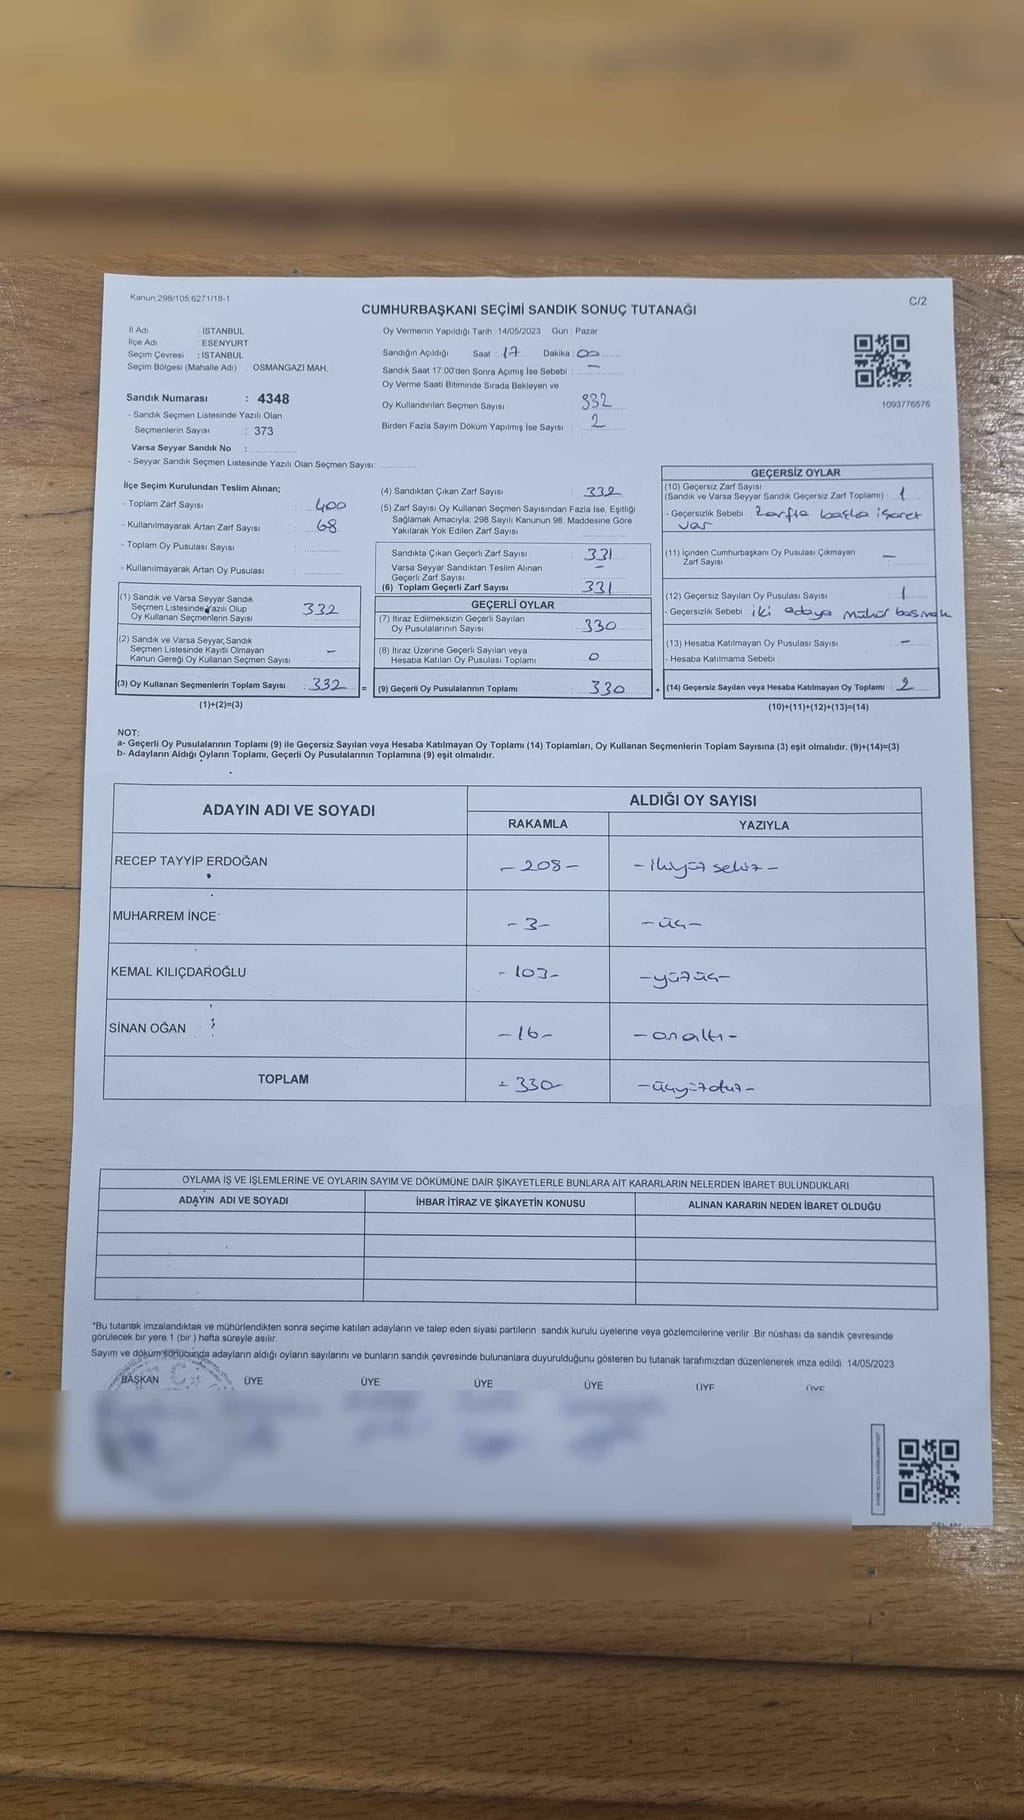 Kanun:298/105;6271/18-1
C/2
CUMHURBAŞKANI SEÇİMİ SANDIK SONUÇ TUTANAĞI
İl Adı : İSTANBUL
İlçe Adı : ESENYURT
Seçim Çevresi : İSTANBUL
Seçim Bölgesi (Mahalle Adı) : OSMANGAZİ MAH.
Sandık Numarası : 4348
- Sandık Seçmen Listesinde Yazılı Olan
Seçmenlerin Sayısı : 373
Varsa Seyyar Sandık No :
- Seyyar Sandık Seçmen Listesinde Yazılı Olan Seçmen Sayısı:
Oy Vermenin Yapıldığı Tarih :14/05/2023 Gün : Pazar
Sandığın Açıldığı Saat : 17 Dakika : 00
Sandık Saat 17:00'den Sonra Açımış İse Sebebi : -
Oy Verme Saati Bitiminde Sırada Bekleyen ve
Oy Kullandırılan Seçmen Sayısı : 332
Birden Fazla Sayım Döküm Yapılmış İse Sayısı : 2
1093776576
İlçe Seçim Kurulundan Teslim Alınan;
- Toplam Zarf Sayısı : 400
- Kullanılmayarak Artan Zarf Sayısı : 68
- Toplam Oy Pusulası Sayısı :
- Kullanılmayarak Artan Oy Pusulası :
(1) Sandık ve Varsa Seyyar Sandık
Seçmen Listesinde Yazılı Olup
Oy Kullanan Seçmenlerin Sayısı : 332
(2) Sandık ve Varsa Seyyar, Sandık
Seçmen Listesinde Kayıtlı Olmayan
Kanun Gereği Oy Kullanan Seçmen Sayısı : -
(3) Oy Kullanan Seçmenlerin Toplam Sayısı : 332 =
(1)+(2)=(3)
(4) Sandıktan Çıkan Zarf Sayısı : 332
(5) Zarf Sayısı Oy Kullanan Seçmen Sayısından Fazla İse, Eşitliği
Sağlamak Amacıyla; 298 Sayılı Kanunun 98. Maddesine Göre
Yakılarak Yok Edilen Zarf Sayısı
Sandıkta Çıkan Geçerli Zarf Sayısı : 331
Varsa Seyyar Sandıktan Teslim Alınan
Geçerli Zarf Sayısı : -
(6) Toplam Geçerli Zarf Sayısı : 331
GEÇERLİ OYLAR
(7) İtiraz Edilmeksizin Geçerli Sayılan
Oy Pusulalarının Sayısı : 330
(8) İtiraz Üzerine Geçerli Sayılan veya
Hesaba Katılan Oy Pusulası Toplamı : 0
(9) Geçerli Oy Pusulalarının Toplamı : 330 +
GEÇERSİZ OYLAR
(10) Geçersiz Zarf Sayısı
(Sandık ve Varsa Seyyar Sandık Geçersiz Zarf Toplamı) : 1
- Geçersizlik Sebebi : Zarfta başka işaret
var
(11) İçinden Cumhurbaşkanı Oy Pusulası Çıkmayan
Zarf Sayısı : -
(12) Geçersiz Sayılan Oy Pusulası Sayısı : 1
- Geçersizlik Sebebi : iki adaya mühür basmak
(13) Hesaba Katılmayan Oy Pusulası Sayısı : -
- Hesaba Katılmama Sebebi :
(14) Geçersiz Sayılan veya Hesaba Katılmayan Oy Toplamı : 2
(10)+(11)+(12)+(13)=(14)
NOT:
a- Geçerli Oy Pusulalarının Toplamı (9) ile Geçersiz Sayılan veya Hesaba Katılmayan Oy Toplamı (14) Toplamları, Oy Kullanan Seçmenlerin Toplam Sayısına (3) eşit olmalıdır. (9)+(14)=(3)
b- Adayların Aldığı Oyların Toplamı, Geçerli Oy Pusulalarının Toplamına (9) eşit olmalıdır.
ADAYIN ADI VE SOYADI
ALDIĞI OY SAYISI
RAKAMLA YAZIYLA
RECEP TAYYİP ERDOĞAN - 208 - - ikiyüz sekiz -
MUHARREM İNCE - 3 - - üç -
KEMAL KILIÇDAROĞLU - 103 - - yüzüç -
SİNAN OĞAN - 16 - - onaltı -
TOPLAM - 330 - - üçyüzotuz -
OYLAMA İŞ VE İŞLEMLERİNE VE OYLARIN SAYIM VE DÖKÜMÜNE DAİR ŞİKAYETLERLE BUNLARA AİT KARARLARIN NELERDEN İBARET BULUNDUKLARI
ADAYIN ADI VE SOYADI İHBAR İTİRAZ VE ŞİKAYETİN KONUSU ALINAN KARARIN NEDEN İBARET OLDUĞU
*Bu tutanak imzalandıktan ve mühürlendikten sonra seçime katılan adayların ve talep eden siyasi partilerin sandık kurulu üyelerine veya gözlemcilerine verilir. Bir nüshası da sandık çevresinde
görülecek bir yere 1 (bir) hafta süreyle asılır.
Sayım ve döküm sonucunda adayların aldığı oyların sayılarını ve bunların sandık çevresinde bulunanlara duyurulduğunu gösteren bu tutanak tarafımızdan düzenlenerek imza edildi. 14/05/2023
BAŞKAN ÜYE ÜYE ÜYE ÜYE ÜYE ÜYE